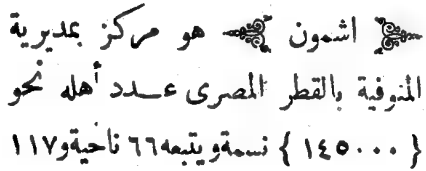 اشمون هو مركز بمديرية
المنوفية بالقطر المصرى عدد أهله نحو
{ ١٤٥٠٠٠ } نسمة ويتبعه ٦٦ ناحية و ١١٧